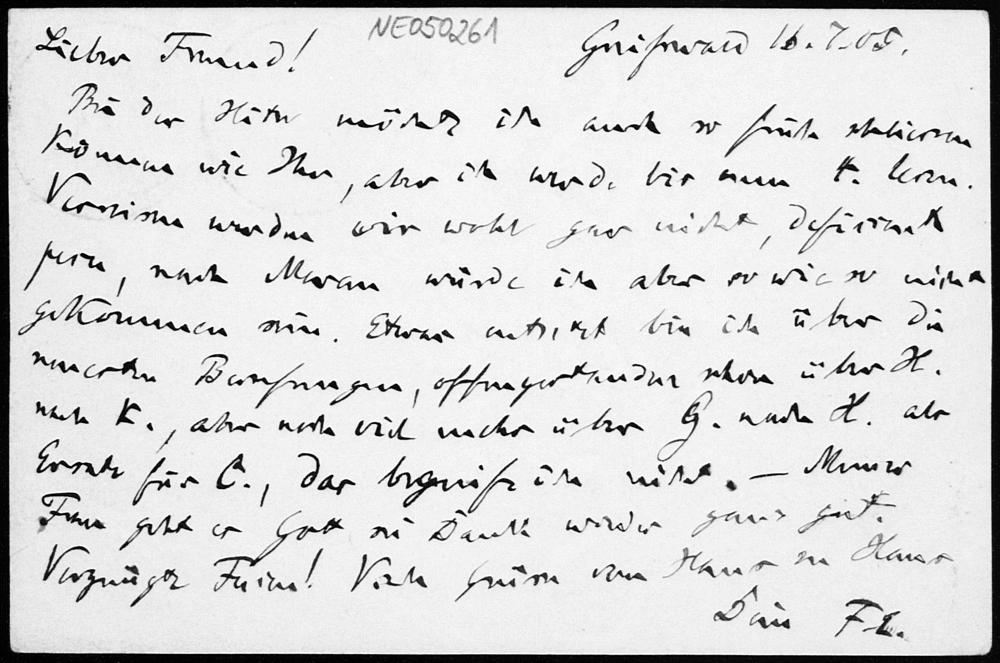 NE050261
Lieber Freund! Greifswald 16.7.05.
Bei der Hitze möchte ich auch so früh schliessen
können wie Ihr, aber ich werde bis zum 4. lesen.
Verreisen werden wir wohl gar nicht, deficiente
pecu, nach Meran würde ich aber sowieso nicht
gekommen sein. Etwas entsetzt bin ich über die
neuesten Berufungen, offengestanden schon über H.
nach K., aber noch viel mehr über G. nach H. als
Ersatz für C., das begreife ich nicht. – Meiner
Frau geht es Gott sei Dank wieder ganz gut.
Vergnügte Ferien! Viele Grüsse von Haus zu Haus
Dein F.E.